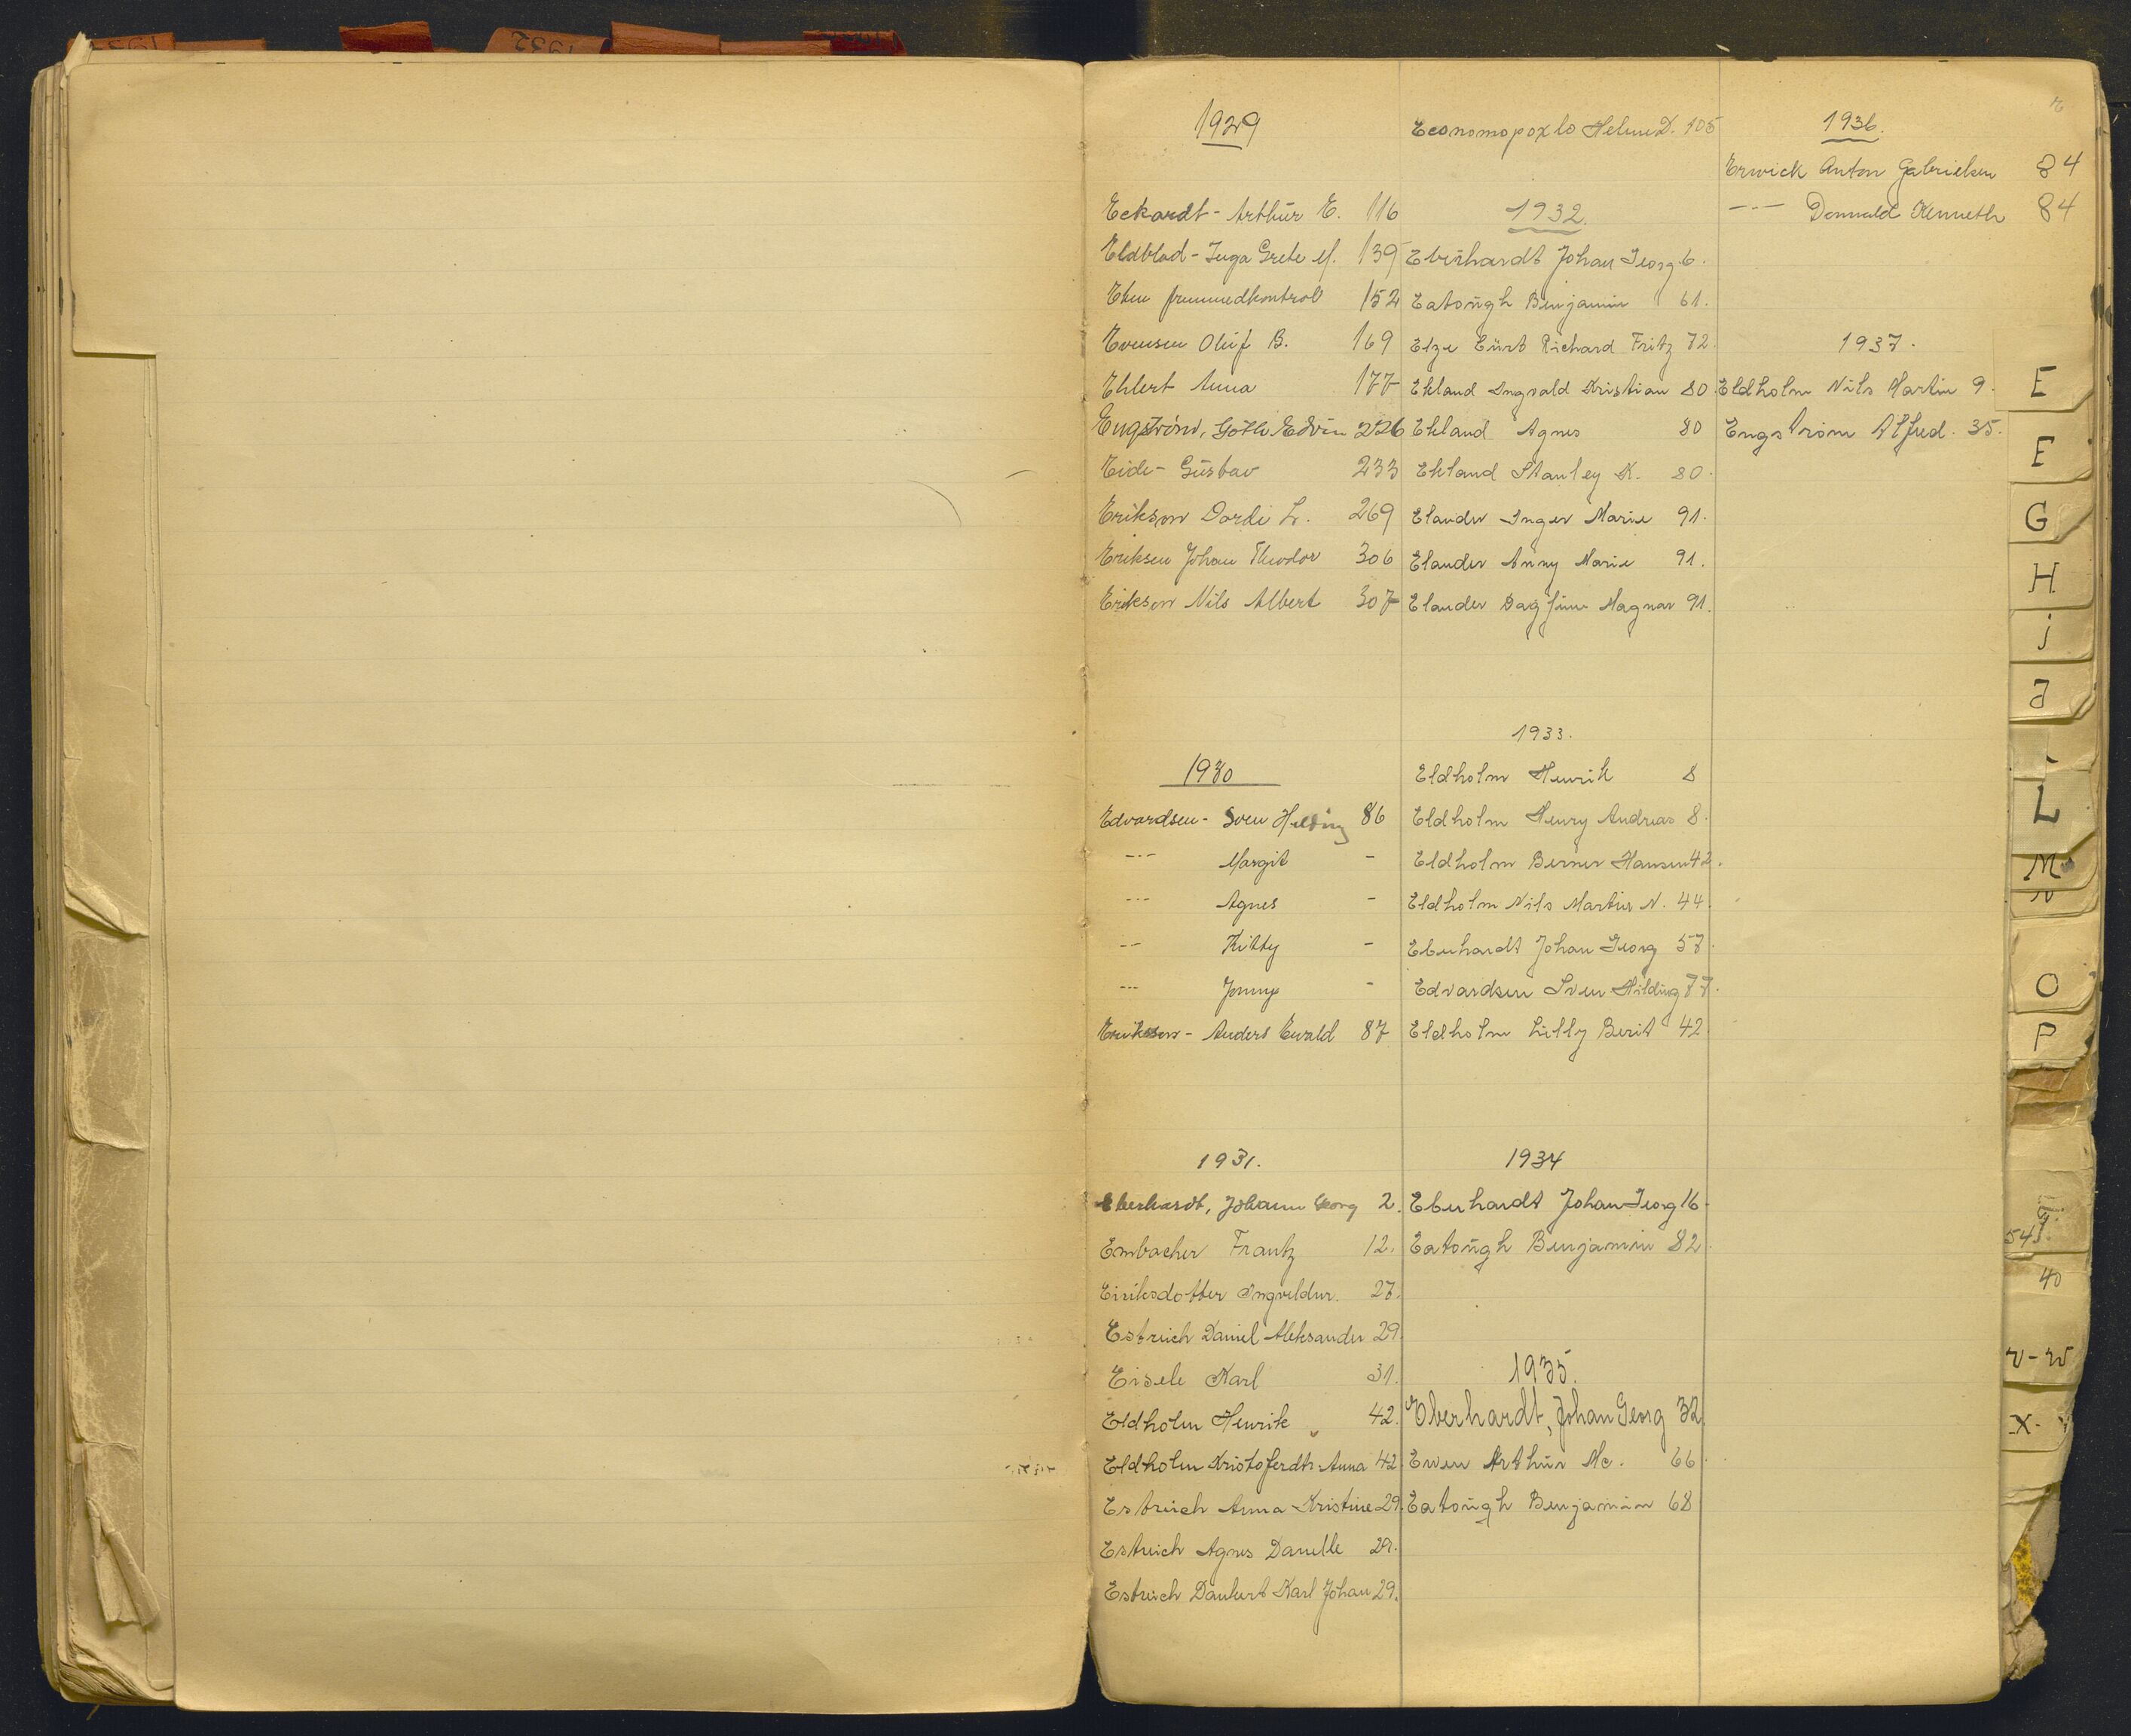 1929
Eckardt - Arthur E. 116
Eldblad - Inga Grete M. 139
Eken fremmedkontrol 152
Evensen Oluf B. 169
Ehlert Anna 177
Engström, Göth Edvin 226
Eide - Gustav 233
Erikson Dordi L. 269
Eriksen Johan Theodor 306
Erikson Nils Albert 307
1930
Edvardsen - Sven Hilding 86
-"- Margit -
-"- Agnes -
-"- Kitty -
-"- Jonny -
Eriksson - Anders Ewald 87
1931.
Eberhardt, Johann Georg 2.
Embacher Frantz 12.
Eiriksdotter Ingveldur. 27.
Estreich Daniel Aleksander 29.
Eisele Karl 31.
Eldholm Henrik 42.
Eldholm Kristoferdtr. Anna 42
Estreich Anna Kristine 29.
Estreich Agnes Danelle 29.
Estreich Dankert Karl Johan 29.
Economopoxlo Helene D. 105
1932.
Eberhardt Johan Georg 6.
Eatough Benjamin 61.
Elze Curt Richard Fritz 72.
Ekland Ingvald Kristian 80.
Ekland Agnes 80
Ekland Stanley K. 80.
Elander Inger Marie 91.
Elander Anny Marie 91.
Elander Dagfinn Magnar 91.
1933.
Eldholm Henrik 8
Eldholm Henry Andreas 8.
Eldholm Berner Hansen 42.
Eldholm Nils Martin N. 44.
Eberhardt Johan Georg 57.
Edvardsen Sven Hilding 77.
Eldholm Lilly Berit 42.
1934
Eberhardt Johan Georg 16.
Eatough Benjamin 82.
1935.
Eberhardt, Johan Georg 32.
Ewen Arthur Mc. 66.
Eatough Benjamin 68
1936.
Erwick Anton Gabrielsen 84
-"- Donnald Kenneth 84
1937.
Eldholm Nils Martin 9.
Engström Alfred. 35.
E
E
G
H
i
J
L
M
N
O
P
545
40
V-W
X.
1932